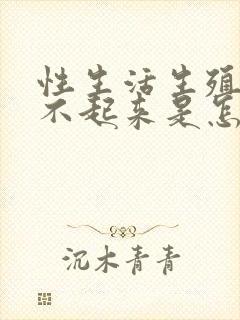 性生活生殖
不起来是怎
沉木青青